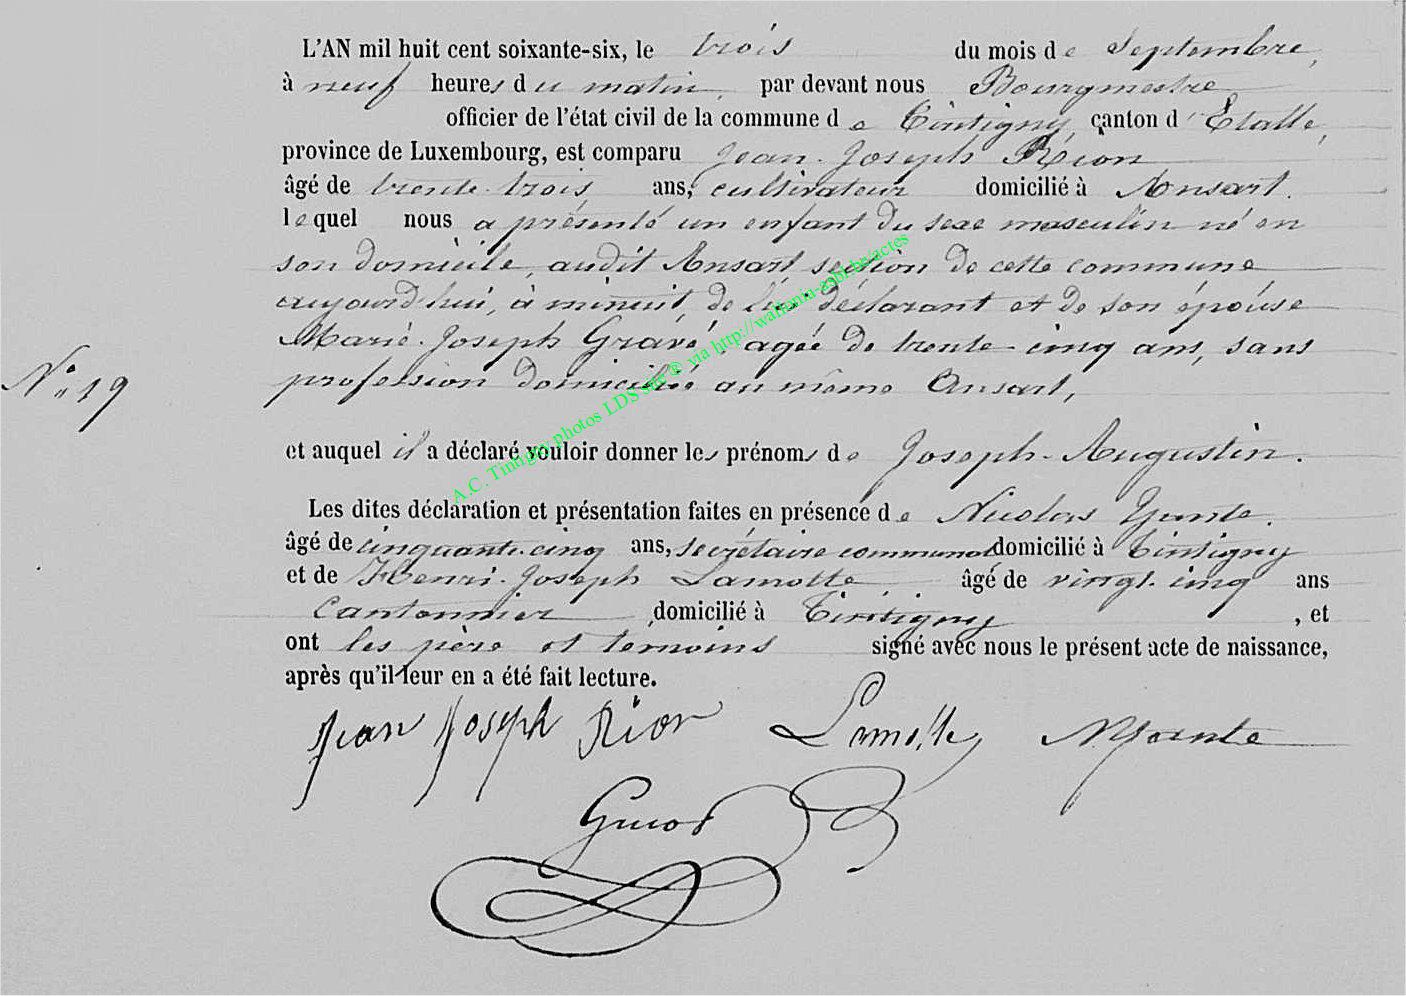 L'AN mil huit cent soixante-six, le trois du mois de Septembre,
à neuf heures du matin, par devant nous Bourgmestre
officier de l'état civil de la commune de Tintigny, canton d'Etalle,
province de Luxembourg, est comparu Jean-Joseph Rion
âgé de trente-trois ans, cultivateur domicilié à Ansart.
lequel nous a présenté un enfant du sexe masculin né en
son domicile, audit Ansart section de cette commune
aujourd'hui, à minuit, de lui déclarant et de son épouse
Marie-Joseph Gravé, agée de trente-cinq ans, sans
profession domiciliée au même Ansart,
N° 19
et auquel il a déclaré vouloir donner les prénoms de Joseph-Augustin.
Les dites déclaration et présentation faites en présence de Nicolas Yante.
âgé de cinquante-cinq ans, secrétaire communal domicilié à Tintigny
et de Henri-Joseph Lamotte âgé de vingt-cinq ans
Cantonnier domicilié à Tintigny, et
ont les père et temoins signé avec nous le présent acte de naissance,
après qu'il leur en a été fait lecture.
Jean Joseph Rion Lamotte NYante
A.C. Tintigny photos LDS sur ® via http://wallonia-asbl.be/actes